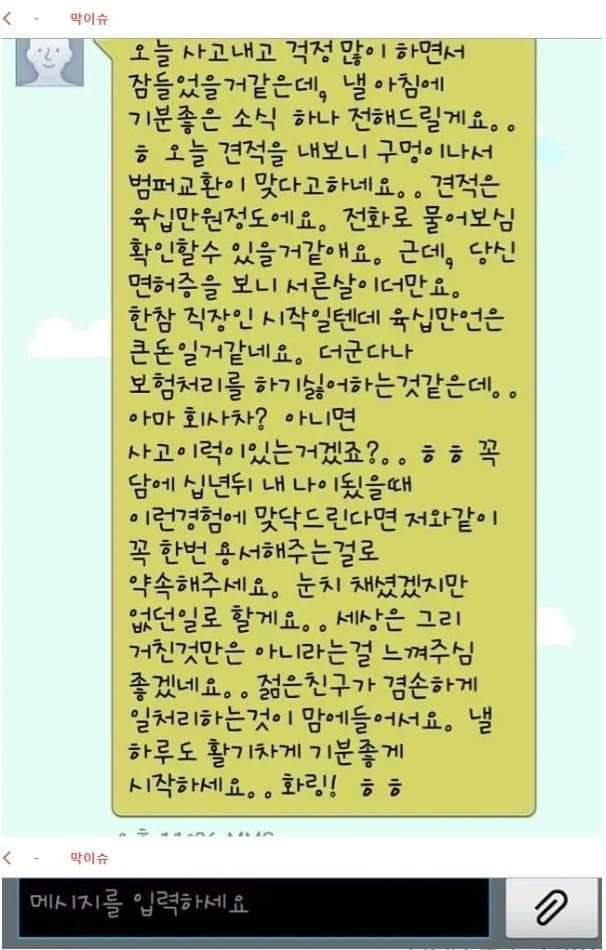 < - 막이슈
오늘 사고내고 걱정 많이 하면서
잠들었을거같은데, 낼 아침에
기분좋은 소식 하나 전해드릴게요..
ㅎ 오늘 견적을 내보니 구멍이나서
범퍼교환이 맞다고하네요.. 견적은
육십만원정도에요. 전화로 물어보심
확인할수 있을거같애요. 근데, 당신
면허증을 보니 서른살이더만요.
한참 직장인 시작일텐데 육십만언은
큰돈일거같네요. 더군다나
보험처리를 하기싫어하는것같은데..
아마 회사차? 아니면
사고이력이있는거겠죠?.. ㅎㅎ 꼭
담에 십년뒤 내 나이됬을때
이런경험에 맞닥드린다면 저와같이
꼭 한번 용서해주는걸로
약속해주세요. 눈치 채셨겠지만
없던일로 할게요.. 세상은 그리
거친것만은 아니라는걸 느껴주심
좋겠네요.. 젊은친구가 겸손하게
일처리하는것이 맘에들어서요. 낼
하루도 활기차게 기분좋게
시작하세요.. 화링! ㅎㅎ
< - 막이슈
메시지를 입력하세요